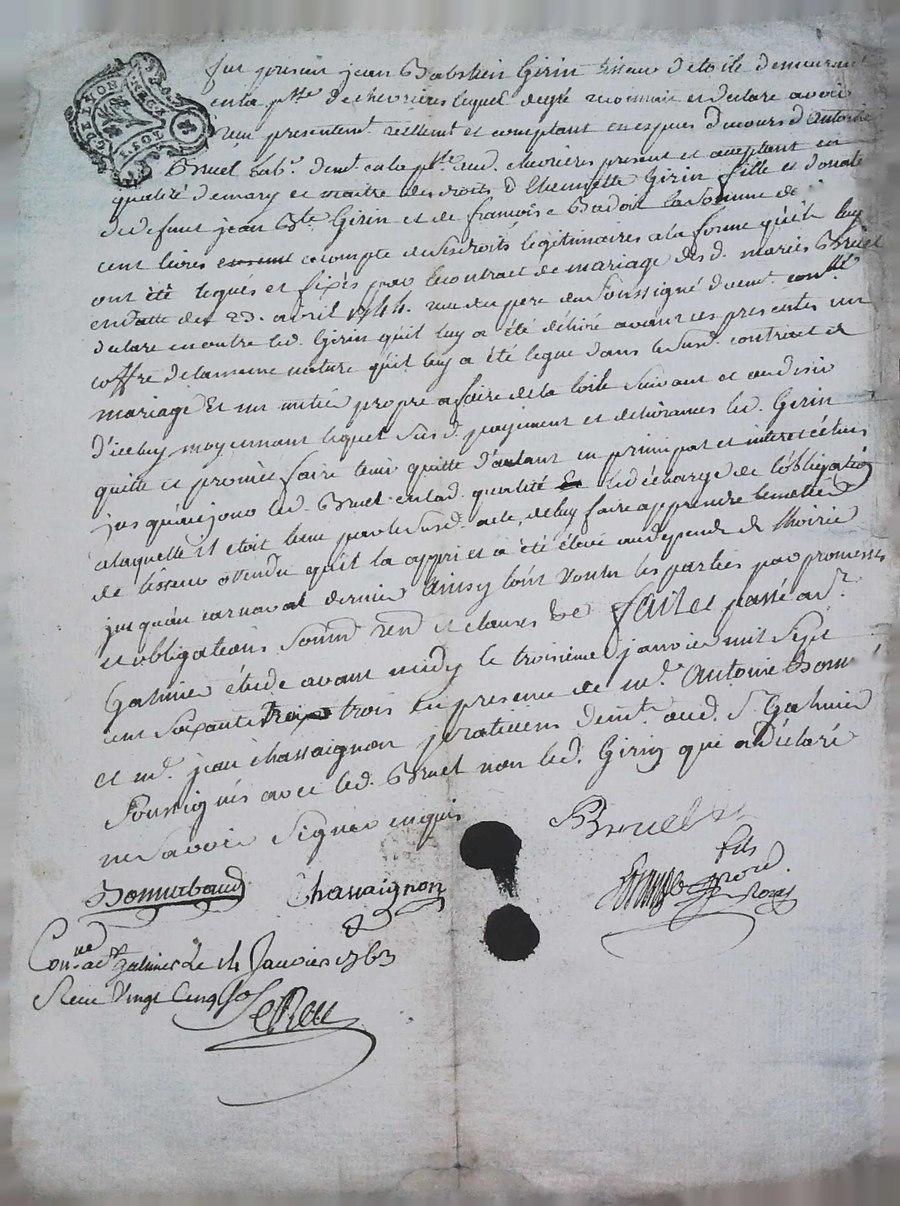 G. DE LYON
fut present jean Babtistien Girin tisseur detoile demeurant
en la ptte de chevrières lequel degré reconnait et declare avoir
recu presentemt reellemt et comptant en espces de cours d antoine
Bruel habt demt en la ptte aud. chevrières present et acceptant en
qualité de mary et maitre des droits d'Ethiennette Girin fille et donatre
de defunt jean Bte Girin et de francoise Badol la somme de
cent livres acompte de ses droits legitimaires a la forme qu'ils luy
ont été legués et fixés par le contrat de mariage des d. mariés Bruel
en datte du 23. avril 1744. recu du pere du soussigné duemt conllé
declare en outre led. Girin qu'il luy a été délivré avant ces presentes un
coffre de la meme nature qu'il luy a été legué dans le susd. contract de
mariage Et un métié propre a faire de la toile suivant et au desir
d'iceluy moyennant lequel susd. payement et delivrances led. Girin
quitte et promet faire tenir quitte d'autant en principal et interet échus
jusqu'aujourd. led. Bruel en lad. qualité led. décharge de l'obligation
a laquelle il étoit tenu par le susd. acte, de luy faire apprendre le metier
de tisseur attendu qu'il l'a appri et a été élevé au depend de l'hoirie
jusqu'au carnaval dernier Ainsy l'ont voulu les parties par promesses
et obligations soumn renon et clauses &c fait et passé a St
Galmier étude avant midy le troisieme janvier mil sept
cent soixante trois En presence de mr. Antoine Bonnebaud
et mr. jean Chassaignon praticiens demt. aud. St Galmier
soussignés avec led. Bruel non led. Girin qui a déclaré
ne savoir signer enquis
Bruel
fils
Bonnebaud Chassaignon
Conné a St galmier Le 14 Janvier 1763
Recu Vingt Cinq sols